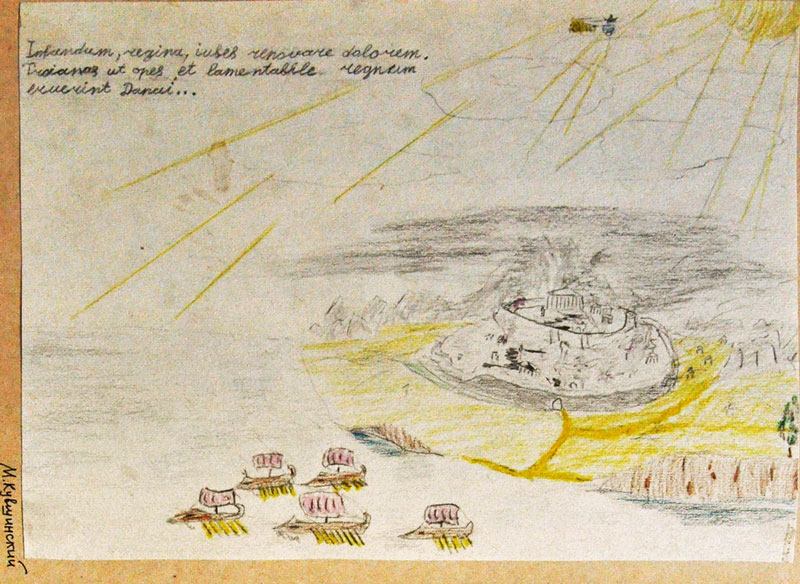 Infandum, regina, iubes renovare dolorem.
Troianas ut opes et lamentabile regnum
eruerint Danai...
М.Кувшинский